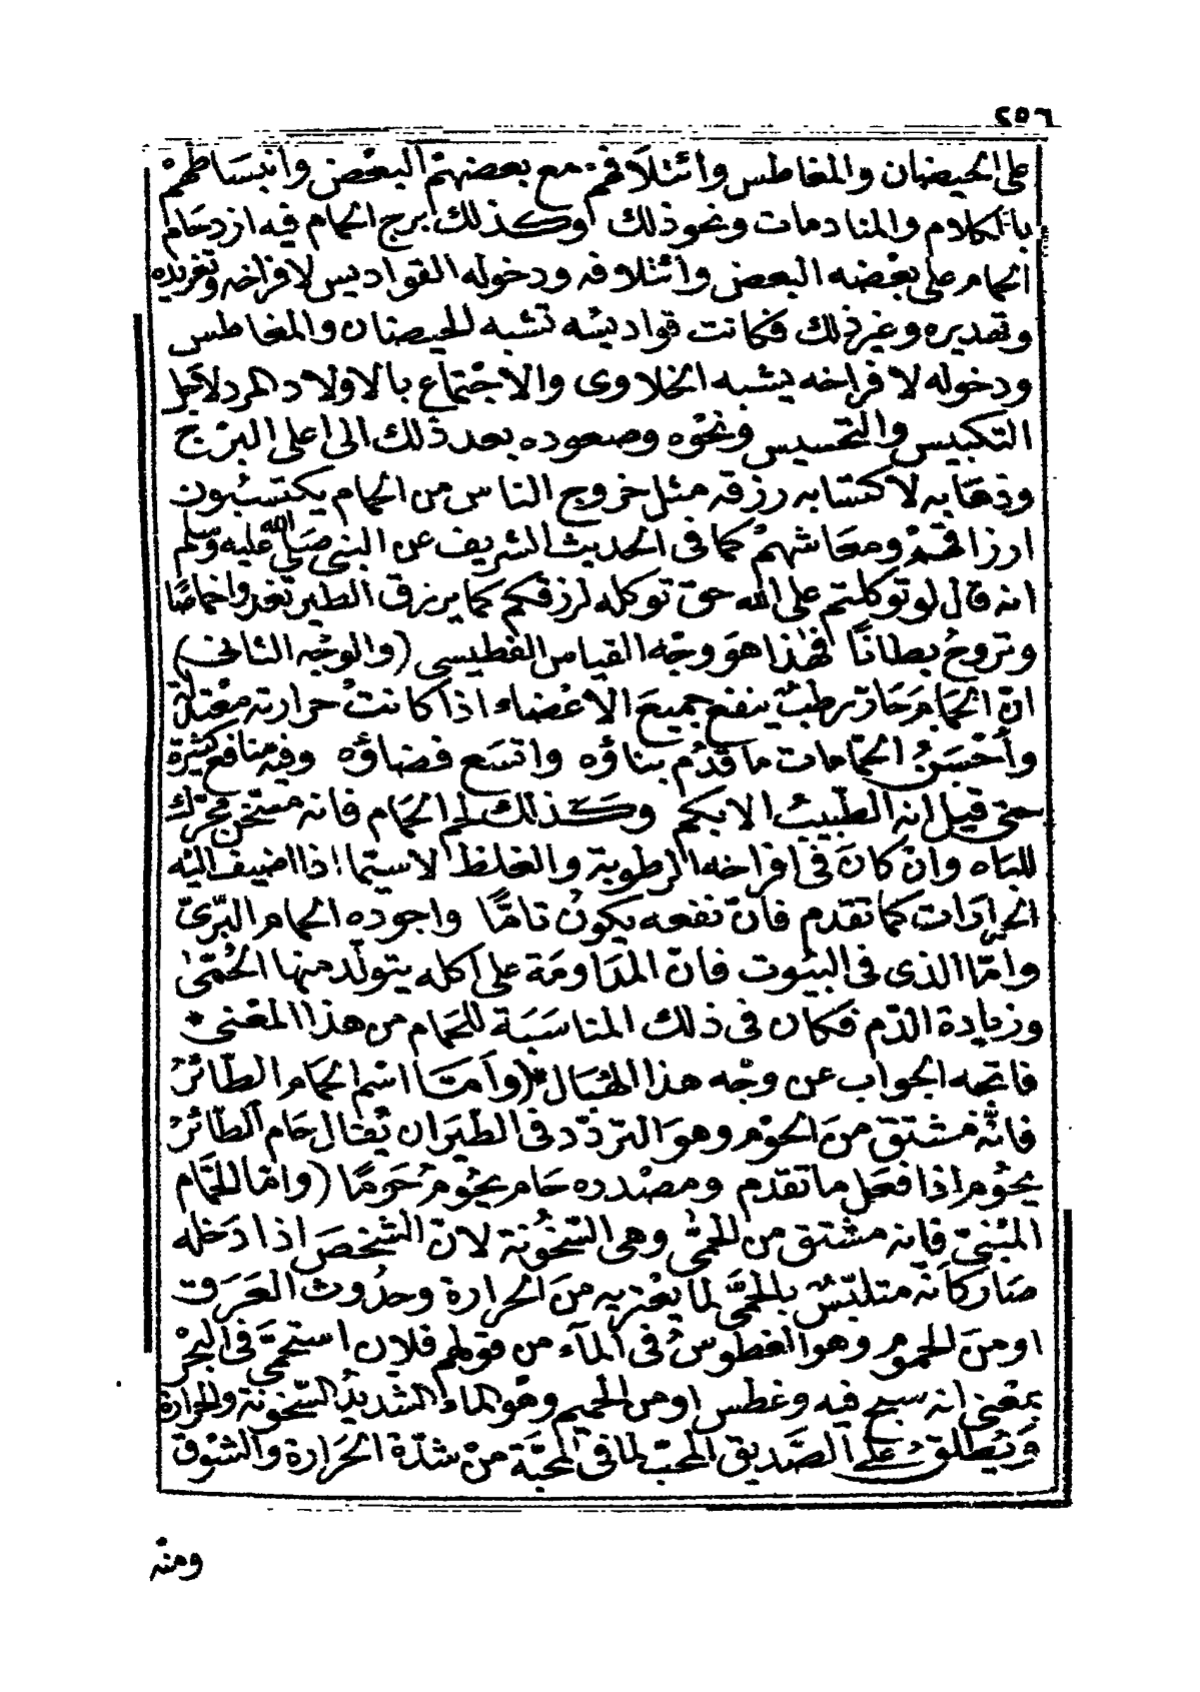 ٢٥٦
على الحيضان والمغاطس وائتلافهم مع بعضهم البعض وانبساطهم
بالكلام والمنادمات ونحو ذلك وكذلك برج الحمام فيه ازدحام
الحمام على بعضه البعض وائتلافه ودخوله القواديس لافراخه وتغريده
وتهديره وغير ذلك فكانت قواديسه تشبه للحيضان والمغاطس
ودخوله لافراخه يشبه الخلاوى والاجتماع بالاولاد المرد لاجل
التكبيس والتحسيس ونحوه وصعوده بعد ذلك الى اعلى البرج
وذهابه لاكتسابه رزقه مثل خروج الناس من الحمام يكتسبون
ارزاقهم ومعاشهم كما فى الحديث الشريف عن النبى صلى الله عليه وسلم
انه قال لو توكلتم على الله حق توكله لرزقكم كما يرزق الطير تغدوا خماصا
وتروح بطانا فهذا هو وجه القياس الفطيسى (والوجه الثانى)
انّ الحمام حارّ رطب ينفع جميع الاعضاء اذا كانت حرارته معتدلة
وأحسن الحمّامات ما قدم بناؤه واتسع فضاؤه وفيه منافع كثيرة
حتى قيل انه الطبيب الابكم وكذلك لحم الحمام فانه مسخن محرّك
للباه وان كان فى افراخه الرطوبة والغلظ لاسيّما اذا اضيف اليه
الحرارات كما تقدم فانّ نفعه يكون تامّا واجوده الحمام البرّىّ
وامّا الذى فى البيوت فانّ المداومة على اكله يتولّد منها الحمّى
وزيادة الدّم فكان فى ذلك المناسبة للحمام من هذا المعنى *
فاتجه الجواب عن وجه هذا الهبال * (وأمّا اسم الحمام الطائر
فانّه مشتق من الحوم وهو التردّد فى الطيران يقال حام الطائر
يحوم اذا فعل ما تقدم ومصدره حام يحوم حوما (وامّا الحمّام
المبنىّ فانه مشتق من الحمّى وهى السّخونة لانّ الشخص اذا دخله
صار كأنّه متلبّس بالحمّى لما يعتريه من الحرارة وحدوث العرق
او من الحموم وهو الغطوس فى المآء من قولهم فلان استحمّى فى البحر
بمعنى انه سبح فيه وغطس او من الحميم وهو الماء الشديد السّخونة والحرارة
ويطلق على الصّديق المحبّ لما فى المحبّة من شدّة الحرارة والشوق
ومنه